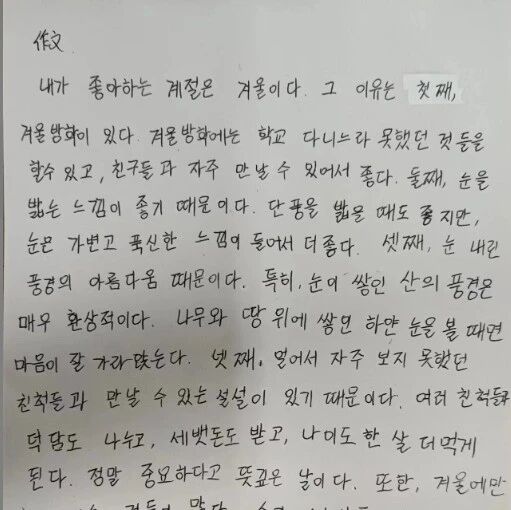 作文
내가 좋아하는 계절은 겨울이다. 그 이유는 첫째,
겨울방학이 있다. 겨울방학에는 학교 다니느라 못했던 것들을
할수 있고, 친구들과 자주 만날 수 있어서 좋다. 둘째, 눈을
밟는 느낌이 좋기 때문이다. 단풍을 밟을 때도 좋지만,
눈은 가볍고 푹신한 느낌이 들어서 더 좋다. 셋째, 눈 내린
풍경의 아름다움 때문이다. 특히, 눈이 쌓인 산의 풍경은
매우 환상적이다. 나무와 땅 위에 쌓인 하얀 눈을 볼 때면
마음이 잘 가라앉는다. 넷째, 멀어서 자주 보지 못했던
친척들과 만날 수 있는 설설이 있기 때문이다. 여러 친척들과
덕담도 나누고, 세뱃돈도 받고, 나이도 한 살 더 먹게
된다. 정말 중요하다고 뜻깊은 날이다. 또한, 겨울에만